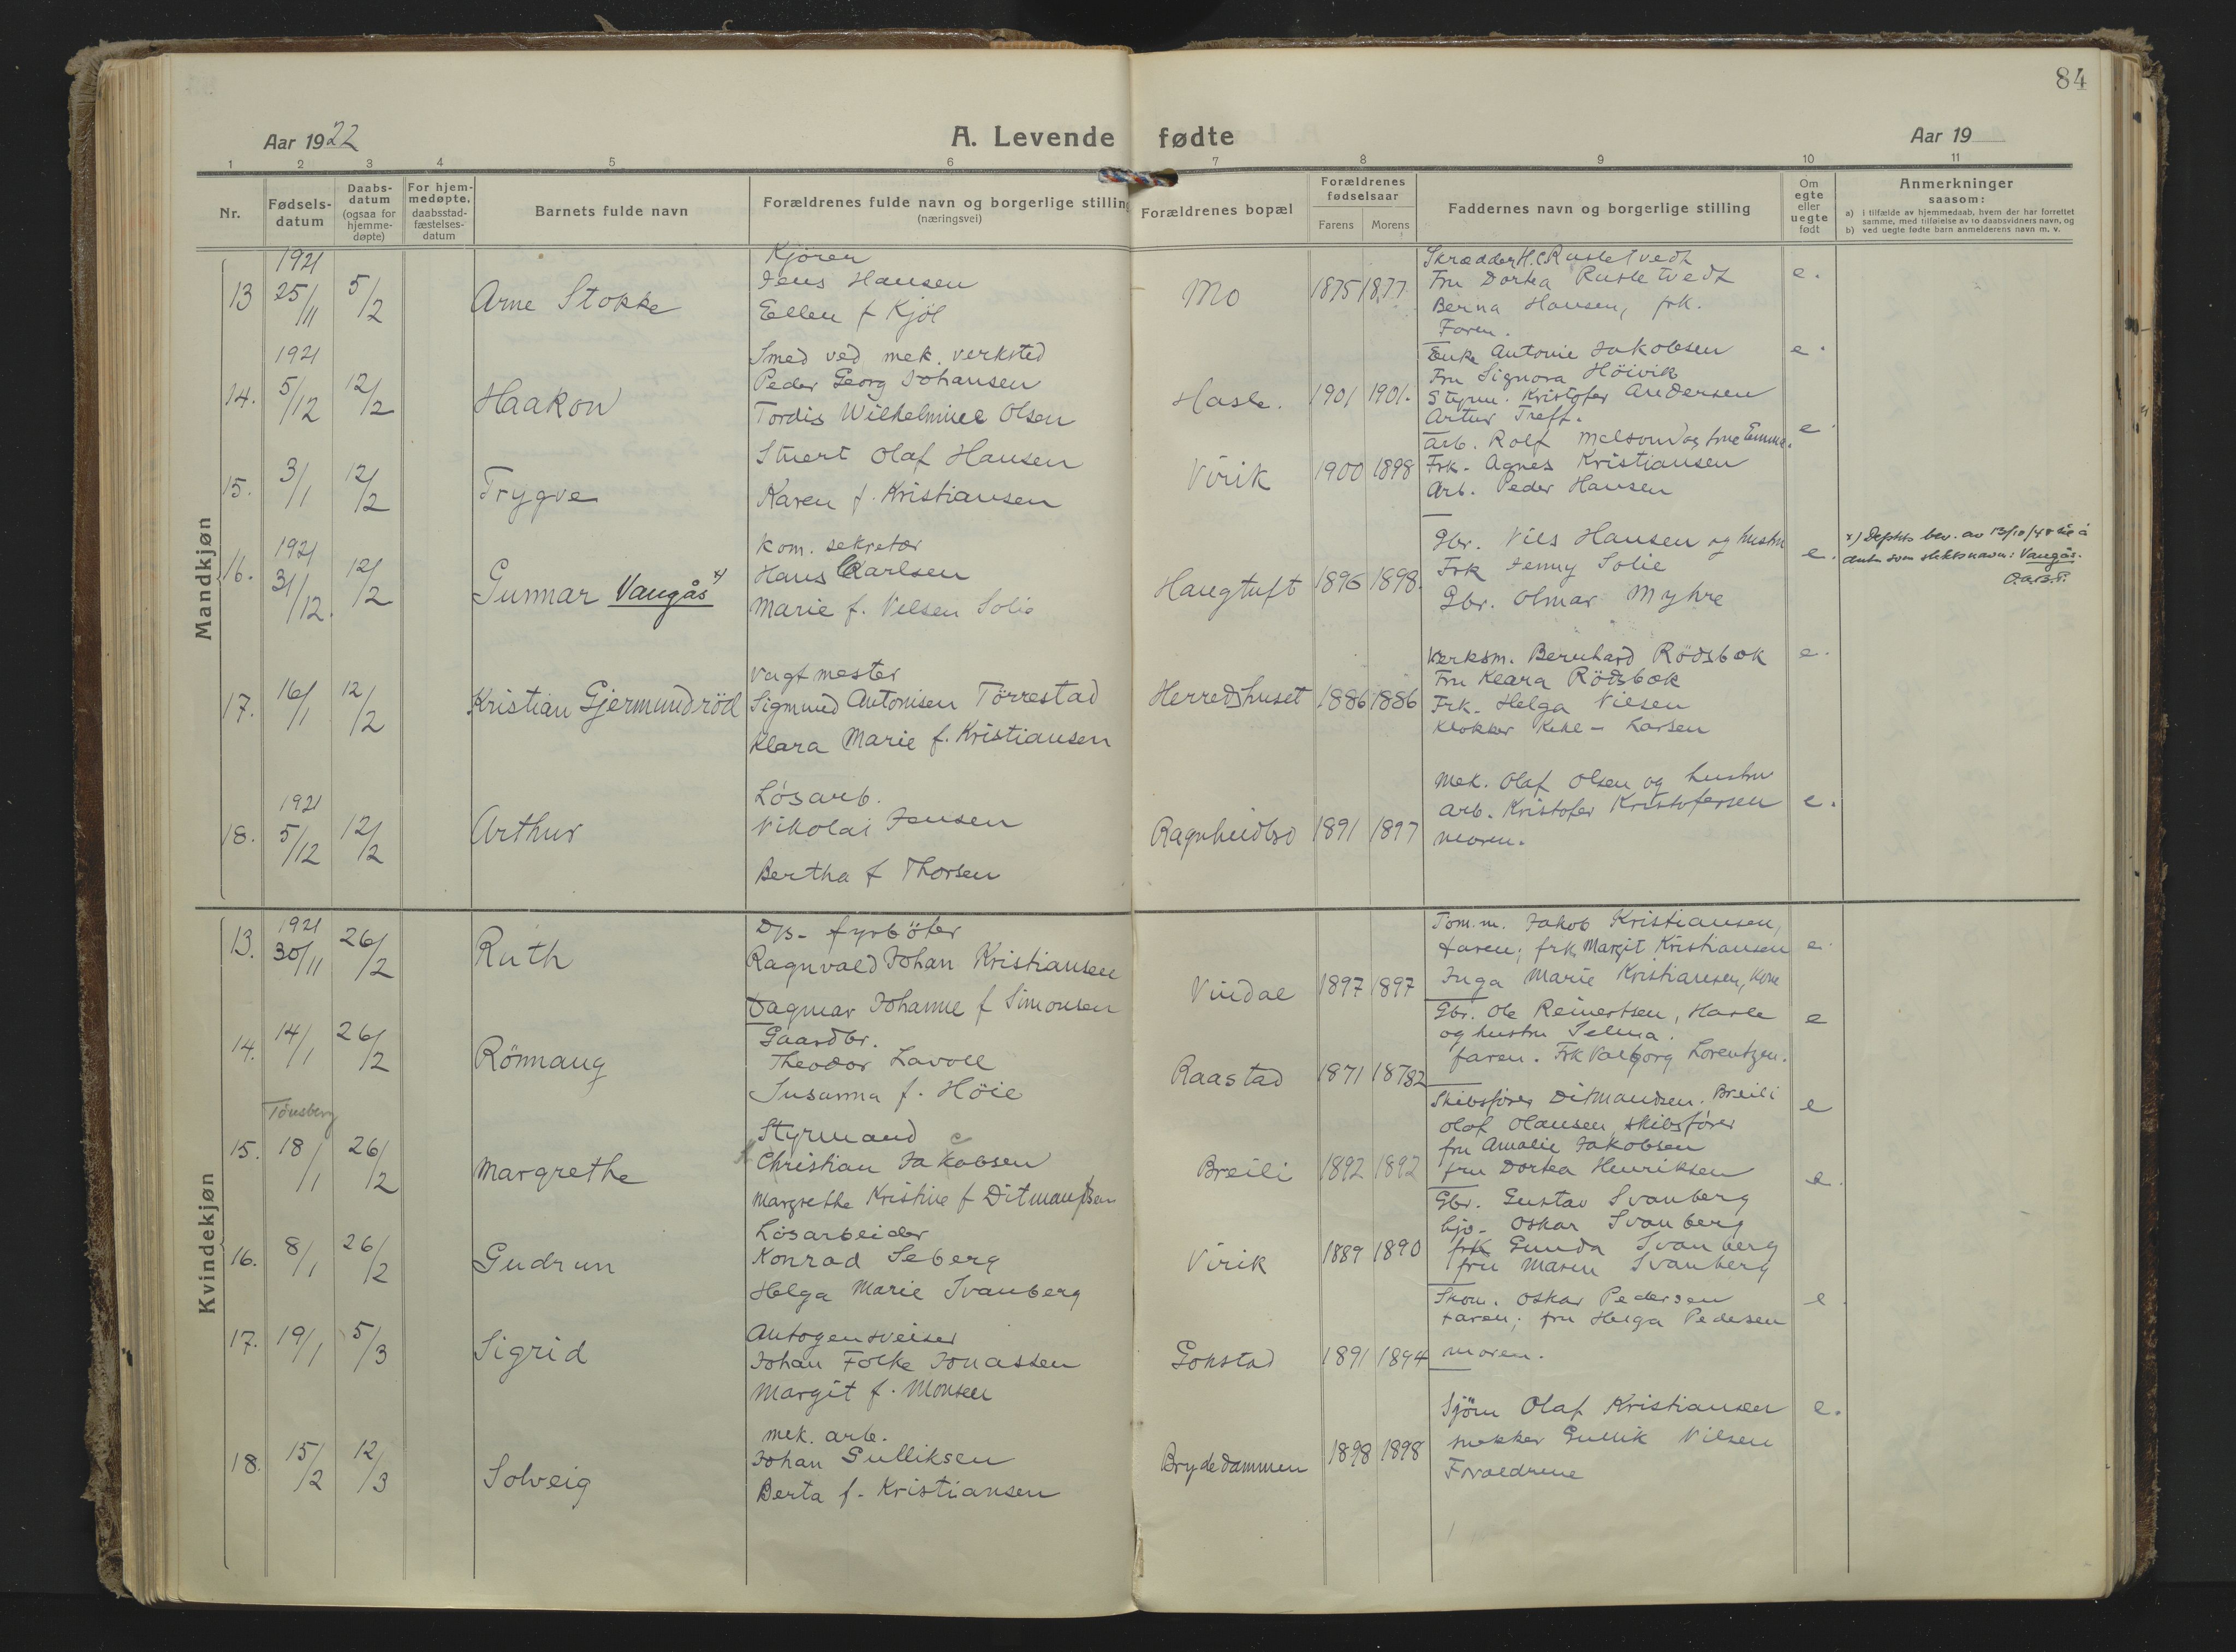 84
Aar 1922
A. Levende fødte
Aar 19
1 2 3 4 5 6 7 8 9 10 11
Nr.
Fødsels-
datum
Daabs-
datum
(ogsaa for
hjemme-
døpte)
For hjem-
medøpte,
daabsstad-
fæstelses-
datum
Barnets fulde navn
Forældrenes fulde navn og borgerlige stilling
(næringsvei)
Forældrenes bopæl
Forældrenes
fødselsaar
Farens Morens
Faddernes navn og borgerlige stilling
Om
egte
eller
uegte
født
Anmerkninger
saasom:
a) i tilfælde av hjemmedaab, hvem der har forrettet
samme, med tilføielse av to daabsvidners navn, og
b) ved uegte fødte barn anmelderens navn m. v.
Mandkjøn
13
1921
25/11
5/2
Arne Stokke
Kjörer
Jens Hansen
Ellen f Kjöl
Mo
1875 1877
Skrædder H.C. Rustetvedt
Fru Dortea Rustetvedt
Berna Hansen, frk.
Faren.
e.
14.
1921
5/12
12/2
Haakon
Smed ved mek. verksted
Peder Georg Johansen
Tordis Wilhelmine Olsen
Hasle.
1901 1901.
Enke Antonie Jakobsen
Fru Signora Höivik
Styrm. Kristofer Andersen
Artur Treff.
e.
15.
3/1
12/2
Trygve
Stuert Olaf Hansen
Karen f. Kristiansen
Virik
1900 1898
Arb. Rolf Melsom og frue Emma.
Frk. Agnes Kristiansen
Arb. Peder Hansen
e.
16.
1921
31/12.
12/2
Gunnar Vangås x)
Kom. sekretær
Hans Carlsen
Marie f. Nelsen Solie
Haugtuft
1896 1898.
Gbr. Nils Hansen og hustru
Frk Jenny Solie
Gbr. Olmar Myhre
e.
x) Depts bev. av 13/10/48 til å
anta som slektsnavn: Vangås.
17.
16/1
12/2
Kristian Gjermundröd
Vagtmester
Sigmund Antonisen Törrestad
Klara Marie f. Kristiansen
Herredshuset
1886 1886
Verksm. Bernhard Rödsbok
Fru Klara Rödsbok
Frk. Helga Nilsen
Klokker Kehl-Larsen
e.
18.
1921
5/12
12/2
Arthur
Lösarb.
Nikolai Jensen
Bertha f Thorsen
Ragnhildbo
1891 1897
Mek. Olaf Olsen og hustru
Arb. Kristofer Kristofersen
Moren.
e.
Kvindekjøn
13.
1921
30/11
26/2
Ruth
D/s- fyrböter
Ragnvald Johan Kristiansen
Dagmar Johanne f Simonsen
Vindal
1897 1897
Töm.m. Jakob Kristiansen,
Faren; frk. Margit Kristiansen
Inga Marie Kristiansen, kone
e.
14.
14/1
26/2
Rönnaug
Gaardbr.
Theodor Lavoll
Susanna f. Höie
Raastad
1871 1882
Gbr. Ole Reinertsen, Hasle
og hustru Selma.
faren. Frk Valborg Lorentzen.
e
Tönsberg
15.
18/1
26/2
Margrethe
Styrmand
Christian Jakobsen
Margrethe Kristine f Ditmansen
Breili
1892 1892
Skibsförer Ditmansen. Breili
Olaf Olausen, skibsförer
fru Amalie Jakobsen
fru Dortea Henriksen
e
16.
8/1
26/2
Gudrun
Lösarbeider
Konrad Seberg
Helga Marie Svanberg
Virik
1889 1890
Gbr. Gustav Svanberg
Oskar Svanberg
frk Gunda Svanberg
fru Maren Svanberg
e.
17.
19/1
5/3
Sigrid
Autogensveiser
Johan Folke Jonassen
Margit f. Monsen
Gokstad
1891 1894
Skom. Oskar Pedersen
Faren; fru Helga Pedersen
moren.
e
18.
15/2
12/3
Solveig
mek. arb.
Johan Gulliksen
Berta f. Kristiansen
Brydedammen
1898 1898
Sjöm Olaf Kristiansen
snekker Gullik Nilsen
Forældrene
e.